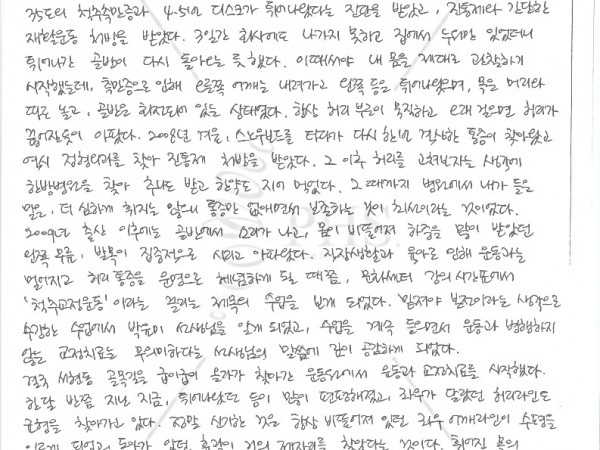 35도의 척추측만증과 4.5번 디스크가 튀어나왔다는 진단을 받았고, 진통제와 간단한
재활운동 처방을 받았다. 3일간 회사에도 나가지 못하고 집에서 누워만 있었더니
튀어나간 골반이 다시 돌아오는 듯 했다. 이때서야 내 몸을 제대로 관찰하기
시작했는데, 측만증으로 인해 오른쪽 어깨는 내려가고 왼쪽 등은 튀어나왔으며, 목은 머리와
따로 놀고, 골반은 회전되어 있는 상태였다. 항상 허리 부근이 묵직하고 오래 걸으면 허리가
끊어질듯이 아팠다. 2008년 겨울, 스노우보드를 타다가 다시 한번 극심한 통증이 찾아왔고
역시 정형외과를 찾아 진통제 처방을 받았다. 그 이후 허리를 고쳐보자는 생각에
한방병원을 찾아 추나도 받고 한약도 지어 먹었다. 그 때까지 병원에서 내가 들은
말은, 더 심하게 휘지는 않으니 통증만 없애면서 보존하는 것이 최선이라는 것이었다.
2009년 출산 이후에는 골반에서 소리가 나고, 몸이 비뚤어져 하중을 많이 받았던
왼쪽 무릎, 발목이 집중적으로 시리고 아파왔다. 직장생활과 육아로 인해 운동과는
멀어지고 허리통증을 운명으로 체념하게 될 때쯤, 문화센터 강의 시간표에서
'척추교정운동' 이라는 끌리는 제목의 수업을 보게 되었다. '밑져야 본전'이라는 생각으로
수강한 수업에서 박 선생님을 알게 되었고, 수업을 계속 들으면서 운동과 병행하지
않는 교정치료는 무의미하다는 선생님의 말씀에 깊이 공감하게 되었다.
결국 서현동 골목길을 굽이굽이 올라가 찾아간 운동실에서 운동과 교정치료를 시작했다.
한달 반쯤 지난 지금, 튀어나왔던 등이 많이 편평해졌고, 좌우가 달랐던 허리라인도
균형을 찾아가고 있다. 정말 신기한 것은 항상 비뚤어져 있던 좌우 어깨라인이 수평을
이루게 되었고 돌아가 있던 흉곽이 거의 제자리를 찾았다는 것이다. 휘어진 몸의
PHS